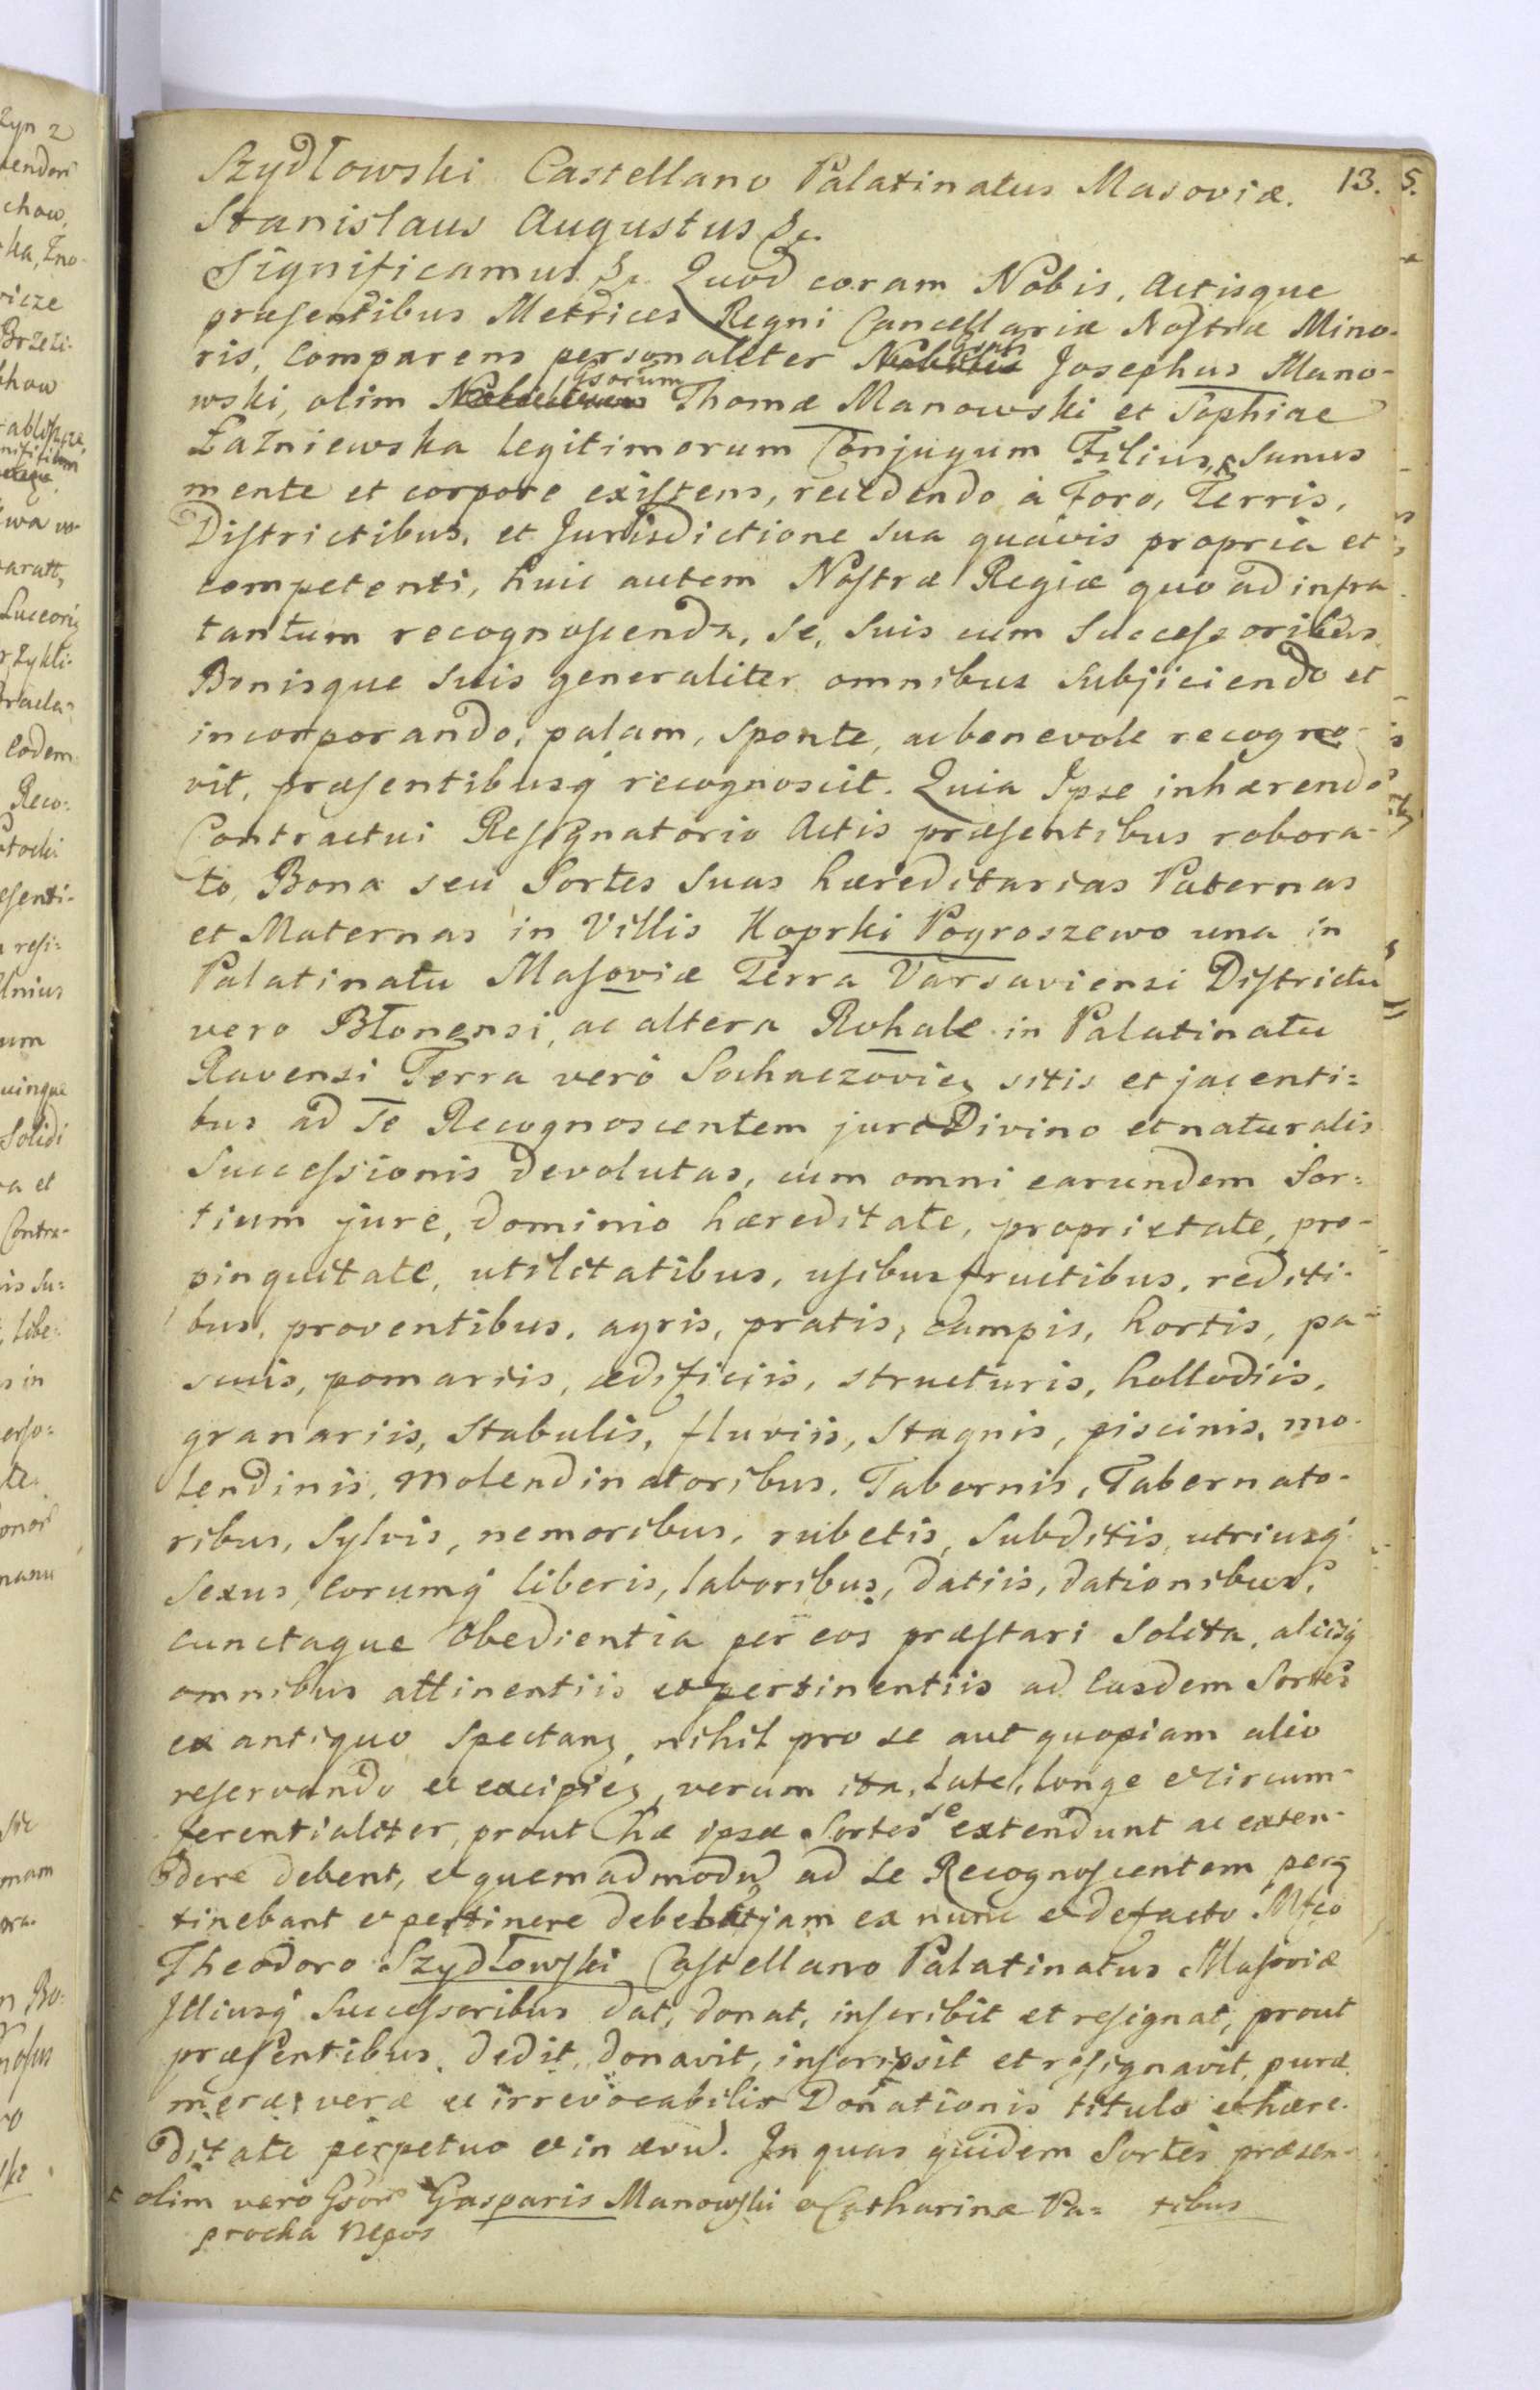 Szydłowski Castellano Palatinatus Masoviæ. 13.
Stanislaus Augustus &c.
Significamus &c. Quod coram Nobis, Actisque
præsentibus Metrices Regni Cancellariæ Nostræ Mino-
ris, comparens personaliter Gsus Josephus Mano-
wski, olim Gsorum Thomæ Manowski et Sophiae
Łaźniewska legitimorum Conjugum Filius, sanus
mente et corpore existens, recedendo à Foro, Terris,
Districtibus, et Jurisdictione sua quavis propria et
competenti, huic autem Nostræ Regiæ quo ad infra
tantum recognoscenda, se, suis cum Successoribus
Bonisque suis generaliter omnibus subjiciendo et
incorporando, palam, sponte, ac benevole recogno-
vit, præsentibusq recognoscit. Quia Ipse inhærendo
Contractui Resignatorio Actis præsentibus robora-
to, Bona seu Sortes Suas hæreditarias Paternas
et Maternas in Villis Koprki Pogroszewo una in
Palatinatu Masoviæ Terra Varsaviensi Districtu
vero Błonensi, ac altera Rokale in Palatinatu
Ravensi Terra verò Sochaczovien sitis et jacenti=
bus ad Se Recognoscentem jure Divino et naturalis
Successionis devolutas, cum omni earundem Sor=
tium jure, dominio hæreditate, proprietate, pro-
pinquitate, utilitatibus, usibus fructibus, rediti-
bus, proventibus, agris, pratis, campis, hortis, pa-
scuis, pomariis, ædificiis, structuris, hollodiis,
granariis, stabulis, fluviis, stagnis, piscinis, mo-
lendinis, Molendinatoribus, Tabernis, Tabernato-
ribus, Sylvis, nemoribus, rubetis, Subditis, utriusq
Sexus, eorumq liberis, laboribus, datiis, dationibus,
cunctaque obedientia per eos præstari solita, aliisq
omnibus attinentiis et pertinentiis ad easdem Sortes
ex antiquo spectan, nihil pro se aut quopiam alio
reservando et excipien, verum ita, late, longe et circum-
ferentialiter, prout hæ ipsæ Sortes se extendunt ac exten-
dere debent, et quemadmodu ad se Recognoscentem per-
tinebant et pertinere debebat jam ex nunc et de facto Mfco
Theodoro Szydłowski Castellano Palatinatus Masoviæ
Illiusq Successoribus dat, donat, inscribit et resignat, prout
præsentibus dedit, donavit, inscripsit et resignavit, puræ
meræ, veræ et irrevocabilis Donationis titulo et hære-
ditate perpetuo et in ævu. In quas quidem Sortes præsen-
olim verò Gsor Gasparis Manowski et Catharinæ Pa= tibus
procka Nepos